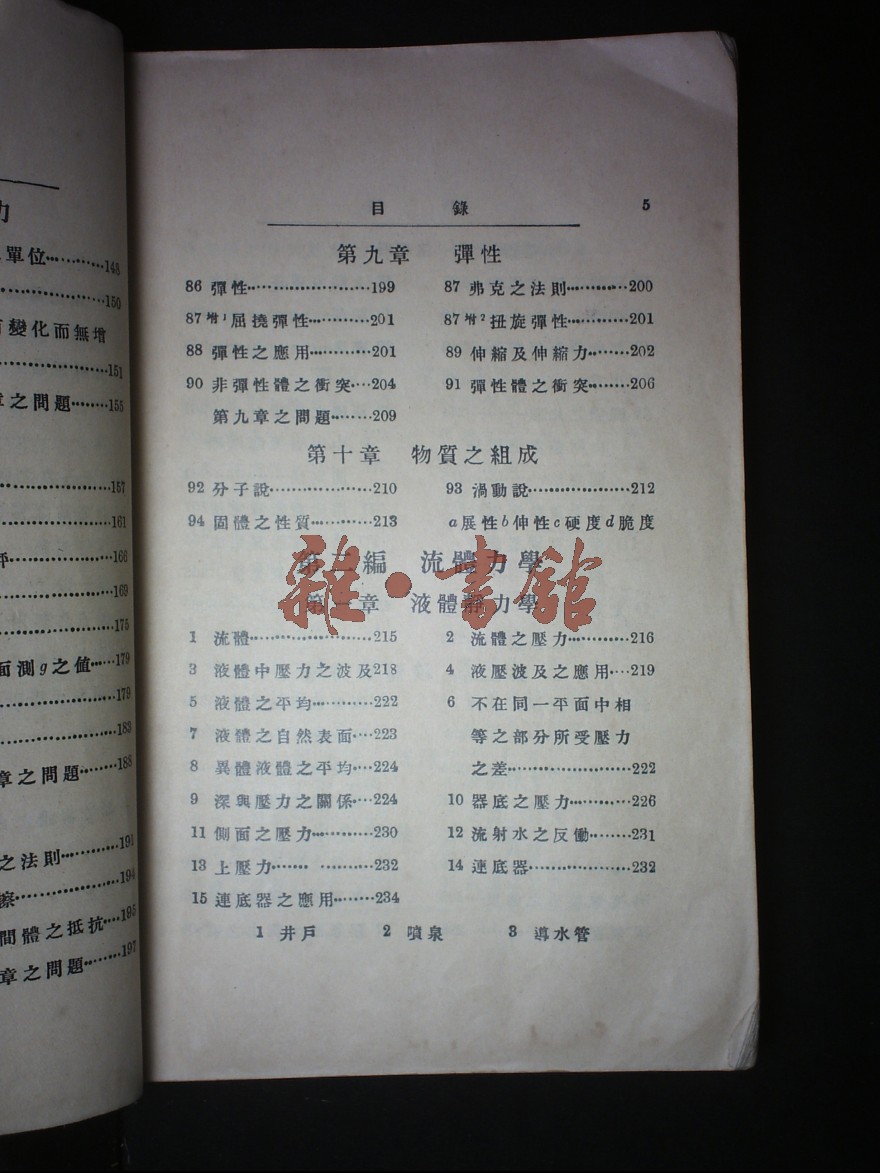 力
單位…………148
……………150
變化而無增
……………151
章之問題………155
……………157
……………161
……………166
……………169
……………175
面測g之値……179
……………179
……………183
章之問題………188
之法則…………191
擦……………194
間體之抵抗……195
章之問題………197
目錄 5
第九章 彈性
86 彈性…………………199 87 弗克之法則…………200
87增1屈撓彈性…………201 87增2扭旋彈性…………201
88 彈性之應用…………201 89 伸縮及伸縮力………202
90 非彈性體之衝突……204 91 彈性體之衝突………206
第九章之問題………209
第十章 物質之組成
92 分子說………………210 93 渦動說………………212
94 固體之性質…………213 a展性b伸性c硬度d脆度
第二編 流體力學
第一章 液體靜力學
雜·書館
1 流體…………………215 2 流體之壓力…………216
3 液體中壓力之波及218 4 液壓波及之應用……219
5 液體之平均…………222 6 不在同一平面中相
7 液體之自然表面……223 等之部分所受壓力
8 異體液體之平均……224 之差…………………222
9 深與壓力之關係……224 10 器底之壓力…………226
11 側面之壓力…………230 12 流射水之反働………231
13 上壓力…… ………232 14 連底器………………232
15 連底器之應用………234
1 井戶 2 噴泉 3 導水管